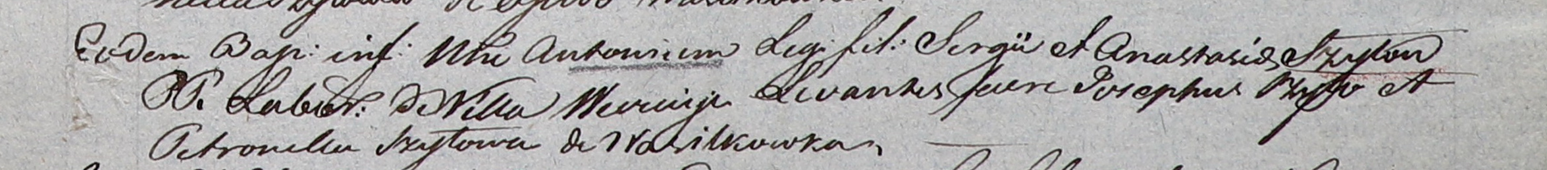 Eodem Bap: inf: Nñe Antonium Legi: fil: Sergii et Anastasiæ Szyłow
PP. Labor: de Villa Levantes fuere Josephus Szyło et
Petronella Szyłowa de Wasilkowka